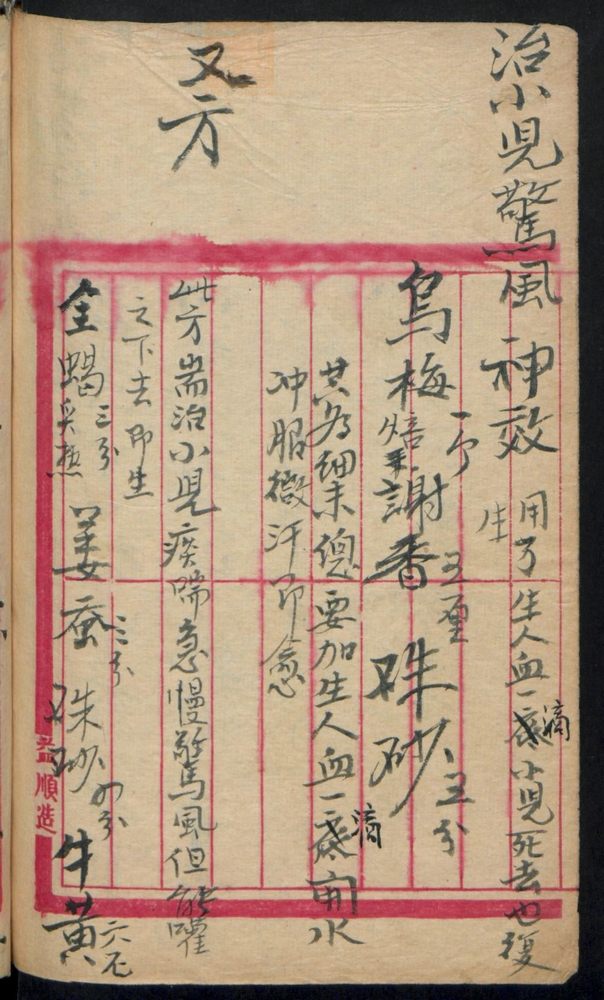 治小児驚風神效 用了生人血一滴小児死去也復
生
烏梅一个焙未謝香五厘 硃砂五分
共為細末總要加生人血一滴開水
冲服微汗即愈
又方
此方耑治小児痰喘急慢驚風但能嚾
之下去即生
全蝎三分炙焦 姜蚕三分 硃砂四分 牛黄六厘
益順造